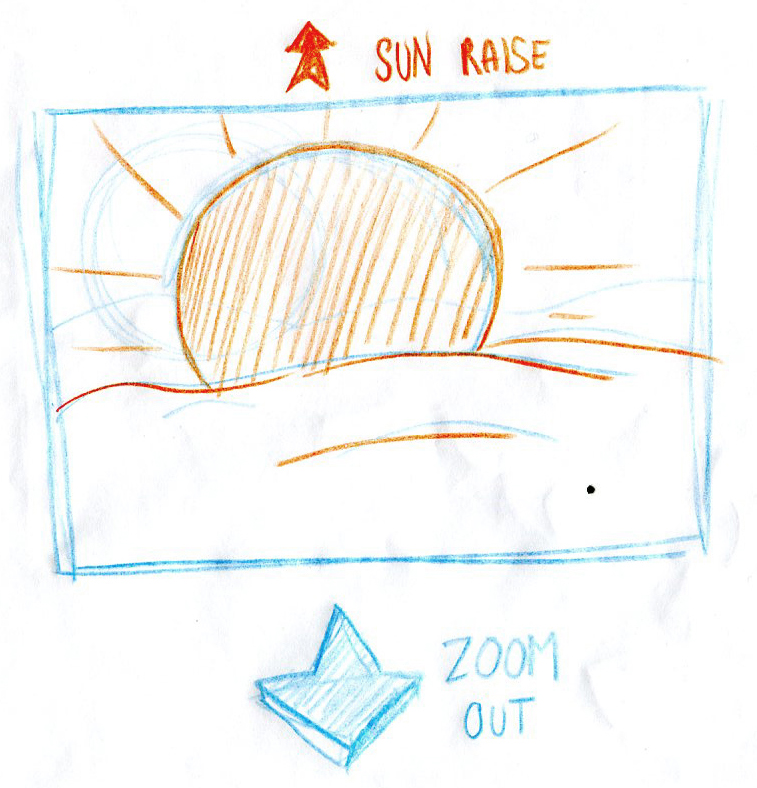 SUN RAISE
ZOOM
OUT